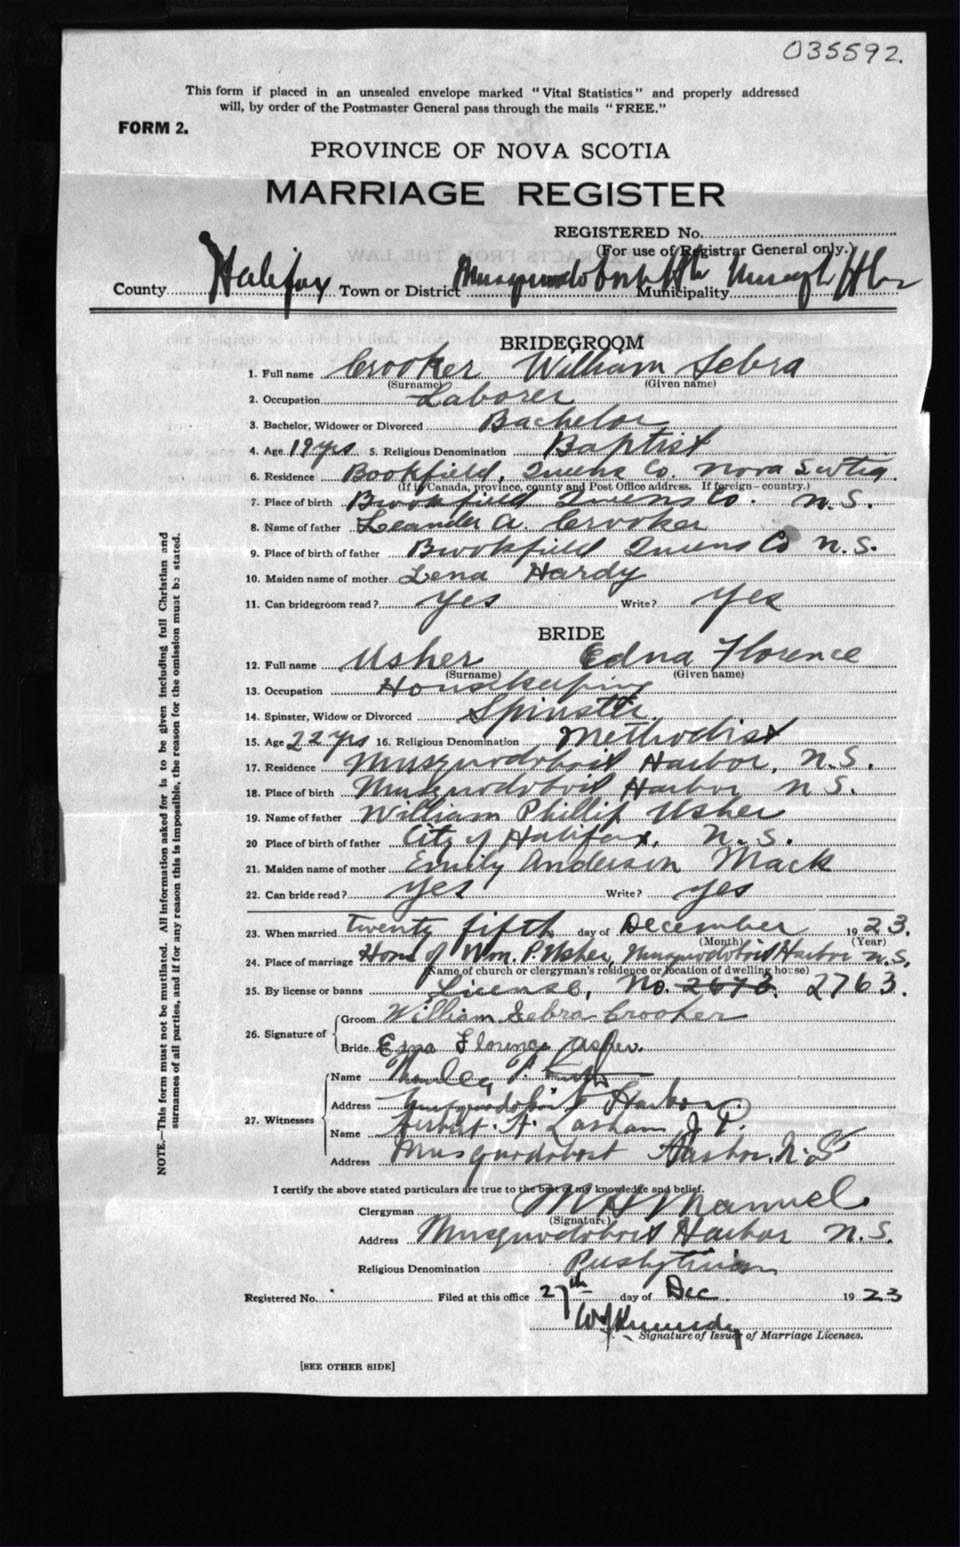 035592.
This form if placed in an unsealed envelope marked "Vital Statistics" and properly addressed
will, by order of the Postmaster General pass through the mails "FREE."
FORM 2.
PROVINCE OF NOVA SCOTIA
MARRIAGE REGISTER
REGISTERED No.
(For use of Registrar General only.)
County Halifax Town or District Musquodoboit Hbr Municipality Musqdt Hbr
BRIDEGROOM
1. Full name Crooker William Sebra
(Surname) (Given name)
2. Occupation Laborer
3. Bachelor, Widower or Divorced Bachelor
4. Age 19 yrs 5. Religious Denomination Baptist
6. Residence Bookfield, Queens Co. Nova Scotia
(If in Canada, province, county and Post Office address. If foreign—country.)
7. Place of birth Brookfield Queens Co. N.S.
8. Name of father Leander A. Crooker
9. Place of birth of father Brookfield Queens Co N.S.
10. Maiden name of mother Lena Hardy
11. Can bridegroom read? Yes Write? Yes
BRIDE
12. Full name Usher Edna Florence
(Surname) (Given name)
13. Occupation Housekeeping
14. Spinster, Widow or Divorced Spinster
15. Age 22 yrs 16. Religious Denomination Methodist
17. Residence Musquodoboit Harbor, N.S.
18. Place of birth Musquodoboit Harbor N.S.
19. Name of father William Phillip Usher
20 Place of birth of father City of Halifax, N.S.
21. Maiden name of mother Emily Anderson Mack
22. Can bride read? yes Write? yes
23. When married twenty fifth day of December 1923.
(Month) (Year)
24. Place of marriage Home of Wm. P. Usher, Musquodoboit Harbor N.S.
(Name of church or clergyman's residence or location of dwelling house)
25. By license or banns License, No. 2763.
26. Signature of Groom William Sebra Crooker
Bride Edna Florence Usher.
27. Witnesses Name
Address Musquodoboit Harbor
Name Herbert. A. J. P.
Address Musquodoboit Harbor, N.S
I certify the above stated particulars are true to the best of my knowledge and belief.
Clergyman M H Manuel
(Signature)
Address Musquodoboit Harbor N.S.
Religious Denomination Presbyterian
Registered No. Filed at this office 27th day of Dec 1923
W J Kennedy
Signature of Issuer of Marriage Licenses.
[SEE OTHER SIDE]
NOTE.—This form must not be mutilated. All information asked for is to be given including full Christian and
surnames of all parties, and if for any reason this is impossible, the reason for the omission must be stated.